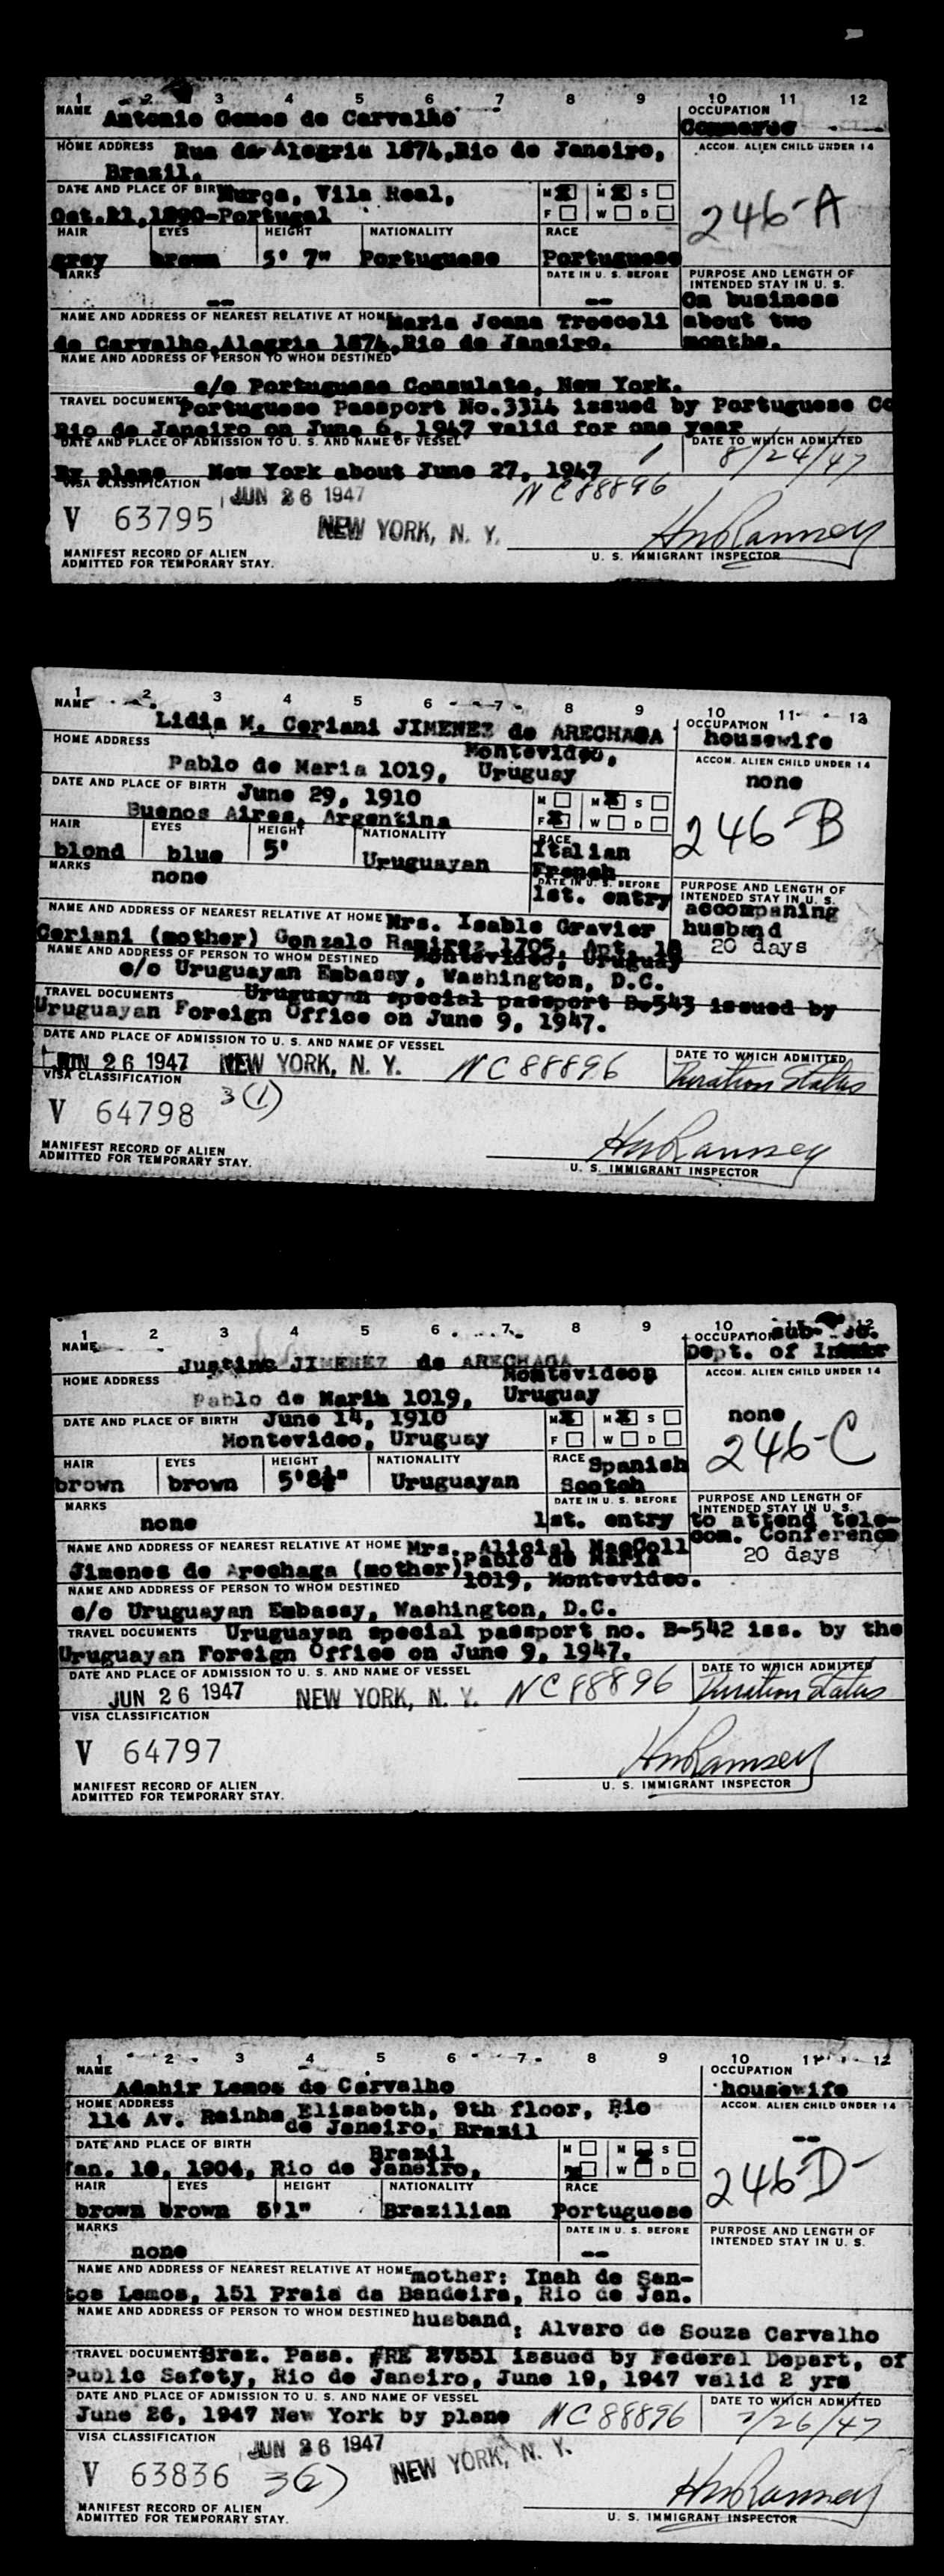 1 2 3 4 5 6 7 8 9 10 11 12
NAME Antonio Gomes de Carvalho
OCCUPATION Commerce
HOME ADDRESS Rua da Alegria 1874, Rio de Janeiro,
Brazil.
ACCOM. ALIEN CHILD UNDER 14
DATE AND PLACE OF BIRTH Murça, Vila Real,
Oct.21,1890-Portugal
M F M S W D
246-A
HAIR EYES HEIGHT NATIONALITY RACE
grey brown 5' 7" Portuguese Portuguese
MARKS --
DATE IN U. S. BEFORE --
PURPOSE AND LENGTH OF INTENDED STAY IN U. S.
On business
about two
months.
NAME AND ADDRESS OF NEAREST RELATIVE AT HOME Maria Joana Troccoli
de Carvalho,Alegria 1874,Rio de Janeiro.
NAME AND ADDRESS OF PERSON TO WHOM DESTINED
c/o Portuguese Consulate, New York.
TRAVEL DOCUMENTS Portuguese Passport No.3314 issued by Portuguese Co
Rio de Janeiro on June 6, 1947 valid for one year
DATE AND PLACE OF ADMISSION TO U. S. AND NAME OF VESSEL
DATE TO WHICH ADMITTED
8/24/47
By plane New York about June 27, 1947
NC88896
VISA CLASSIFICATION
JUN 26 1947
V 63795
NEW YORK, N. Y.
HmRamsey
MANIFEST RECORD OF ALIEN
ADMITTED FOR TEMPORARY STAY.
U. S. IMMIGRANT INSPECTOR
1 2 3 4 5 6 7 8 9 10 11 12
NAME Lidia M. Ceriani JIMENEZ de ARECHAGA
OCCUPATION housewife
HOME ADDRESS Montevideo,
Pablo de Maria 1019, Uruguay
ACCOM. ALIEN CHILD UNDER 14
none
DATE AND PLACE OF BIRTH June 29, 1910
Buenos Aires, Argentina
M F M S W D
246-B
HAIR EYES HEIGHT NATIONALITY RACE
blond blue 5' Uruguayan Italian
French
MARKS none
DATE IN U. S. BEFORE
1st. entry
PURPOSE AND LENGTH OF INTENDED STAY IN U. S.
accompaning
husband
20 days
NAME AND ADDRESS OF NEAREST RELATIVE AT HOME Mrs. Isable Gravier
Ceriani (mother) Gonzalo Ramirez 1705, Apt. 18
Montevideo, Uruguay
NAME AND ADDRESS OF PERSON TO WHOM DESTINED
c/o Uruguayan Embassy, Washington, D.C.
TRAVEL DOCUMENTS Uruguayan special passport B-543 issued by
Uruguayan Foreign Office on June 9, 1947.
DATE AND PLACE OF ADMISSION TO U. S. AND NAME OF VESSEL
DATE TO WHICH ADMITTED
JUN 26 1947 NEW YORK, N. Y. NC88896 Duration Status
VISA CLASSIFICATION
3(1)
V 64798
HmRamsey
MANIFEST RECORD OF ALIEN
ADMITTED FOR TEMPORARY STAY.
U. S. IMMIGRANT INSPECTOR
1 2 3 4 5 6 7 8 9 10 12
NAME Justino JIMENEZ de ARECHAGA
OCCUPATION
Dept. of
HOME ADDRESS Montevideo,
Pablo de Maria 1019, Uruguay
ACCOM. ALIEN CHILD UNDER 14
none
DATE AND PLACE OF BIRTH June 14, 1910
Montevideo, Uruguay
M F M S W D
246-C
HAIR EYES HEIGHT NATIONALITY RACE
brown brown 5'8½" Uruguayan Spanish
Scotch
MARKS none
DATE IN U. S. BEFORE
1st. entry
PURPOSE AND LENGTH OF INTENDED STAY IN U. S.
to attend tele-
com. Conference
20 days
NAME AND ADDRESS OF NEAREST RELATIVE AT HOME Mrs. Alicial MacColl
Jimenes de Arechaga (mother) Pablo de Maria
1019, Montevideo.
NAME AND ADDRESS OF PERSON TO WHOM DESTINED
c/o Uruguayan Embassy, Washington, D.C.
TRAVEL DOCUMENTS Uruguayan special passport no. B-542 iss. by the
Uruguayan Foreign Office on June 9, 1947.
DATE AND PLACE OF ADMISSION TO U. S. AND NAME OF VESSEL
DATE TO WHICH ADMITTED
JUN 26 1947 NEW YORK, N. Y. NC88896 Duration Status
VISA CLASSIFICATION
V 64797
HmRamsey
MANIFEST RECORD OF ALIEN
ADMITTED FOR TEMPORARY STAY.
U. S. IMMIGRANT INSPECTOR
1 2 3 4 5 6 7 8 9 10 11 12
NAME Adahir Lemos de Carvalho
OCCUPATION housewife
HOME ADDRESS
114 Av. Rainha Elisabeth, 9th floor, Rio
de Janeiro, Brazil
ACCOM. ALIEN CHILD UNDER 14
--
DATE AND PLACE OF BIRTH Brazil
Jan. 10, 1904, Rio de Janeiro,
M F M S W D
246-D
HAIR EYES HEIGHT NATIONALITY RACE
brown brown 5'1" Brazilian Portuguese
MARKS none
DATE IN U. S. BEFORE
--
PURPOSE AND LENGTH OF INTENDED STAY IN U. S.
NAME AND ADDRESS OF NEAREST RELATIVE AT HOME mother: Inah de San-
tos Lemos, 151 Praia da Bandeira, Rio de Jan.
NAME AND ADDRESS OF PERSON TO WHOM DESTINED husband: Alvaro de Souza Carvalho
TRAVEL DOCUMENTS Braz. Pass. #RE 27551 issued by Federal Depart, of
Public Safety, Rio de Janeiro, June 19, 1947 valid 2 yrs
DATE AND PLACE OF ADMISSION TO U. S. AND NAME OF VESSEL
DATE TO WHICH ADMITTED
June 26, 1947 New York by plane NC88896 7/26/47
VISA CLASSIFICATION
JUN 26 1947
V 63836
NEW YORK, N. Y.
HmRamsey
MANIFEST RECORD OF ALIEN
ADMITTED FOR TEMPORARY STAY.
U. S. IMMIGRANT INSPECTOR